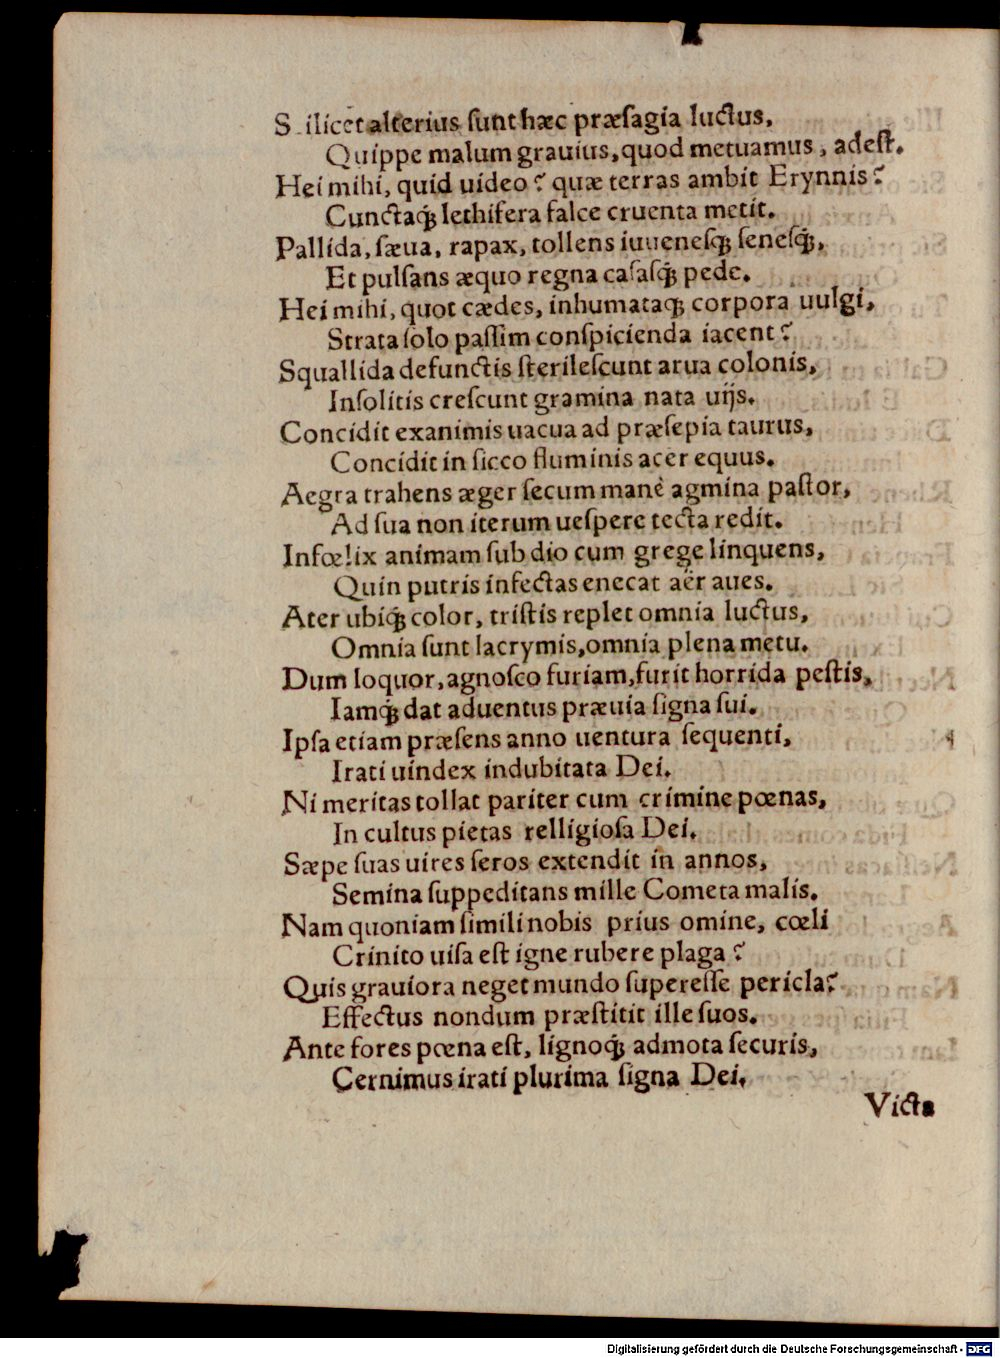 Scilicet alterius sunt hæc præsagia luctus,
Quippe malum grauius, quod metuamus, adest.
Hei mihi, quid uideo? quæ terras ambit Erynnis?
Cunctaq́ꝫ lethifera falce cruenta metit.
Pallida, sæua, rapax, tollens iuuenesq́ꝫ senesq́ꝫ,
Et pulsans æquo regna casasq́ꝫ pede.
Hei mihi, quot cædes, inhumataq́ꝫ corpora uulgi,
Strata solo passim conspicienda iacent?
Squallida defunctis sterilescunt arua colonis,
Insolitis crescunt gramina nata uijs.
Concidit exanimis uacua ad præsepia taurus,
Concidit in sicco fluminis acer equus.
Aegra trahens æger secum manè agmina pastor,
Ad sua non iterum uespere tecta redit.
Infœlix animam sub dio cum grege linquens,
Quin putris infectas enecat aër aues.
Ater ubiq́ꝫ color, tristis replet omnia luctus,
Omnia sunt lacrymis, omnia plena metu.
Dum loquor, agnosco furiam, furit horrida pestis,
Iamq́ꝫ dat aduentus præuia signa sui.
Ipsa etiam præsens anno uentura sequenti,
Irati uindex indubitata Dei.
Ni meritas tollat pariter cum crimine pœnas,
In cultus pietas relligiosa Dei.
Sæpe suas uires seros extendit in annos,
Semina suppeditans mille Cometa malis.
Nam quoniam simili nobis prius omine, cœli
Crinito uisa est igne rubere plaga?
Quis grauiora neget mundo superesse pericla?
Effectus nondum præstitit ille suos.
Ante fores pœna est, lignoq́ꝫ admota securis,
Cernimus irati plurima signa Dei,
Victa
Digitalisierung gefördert durch die Deutsche Forschungsgemeinschaft - DFG